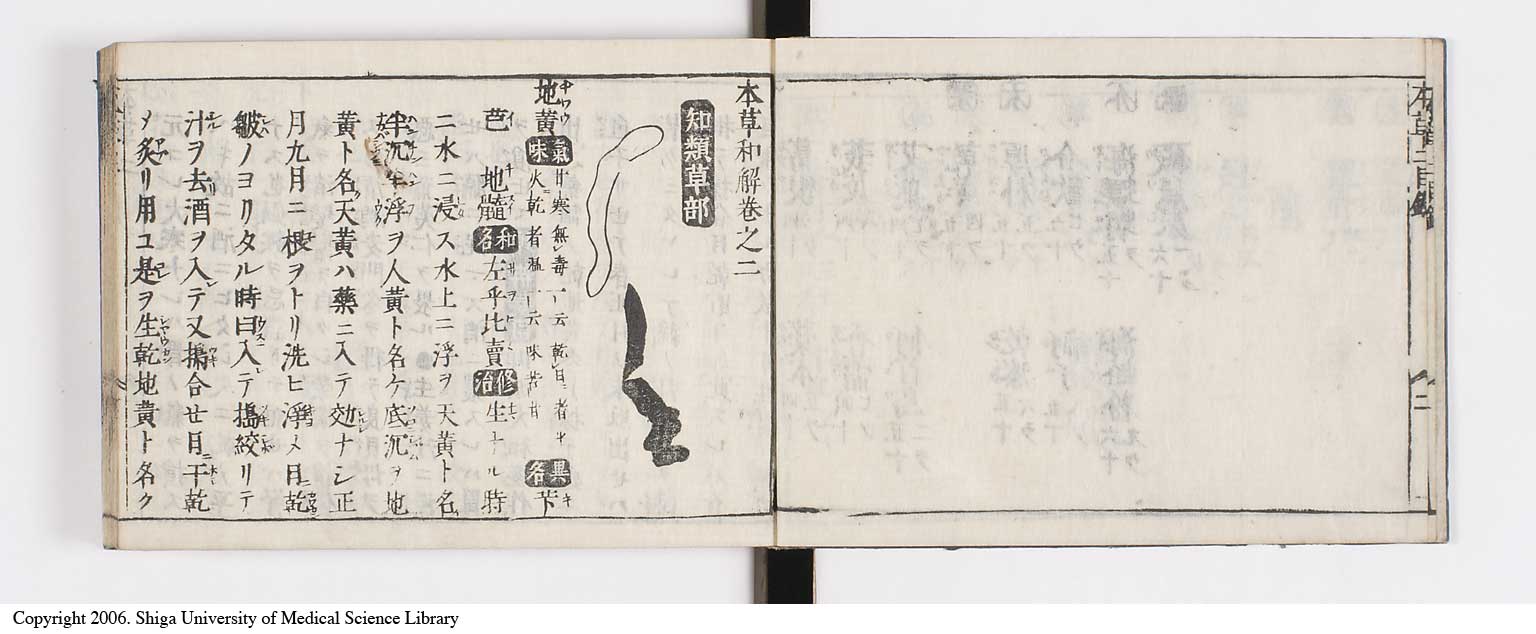 本草和解巻之二
知類草部
地黄 氣味 甘寒無毒一云乾
火乾者温一云味苦甘 異名 苄
芭 地髓 和名 左乎比賣 修治 生ナル時
二水ニ浸ス水上ニ浮ヲ天黄ト名
半沉半浮ヲ人黄ト名ケ底沉ヲ地
黄ト名ク天黄ハ藥ニ入テ効ナシ正
月九月ニ根ヲトリ洗ヒ浄メ日乾
皺ノヨリタル時臼入テ搗絞リテ
汁ヲ去酒ヲ入テ又搗合セ日干乾
ヲ炙リ用ユ是ヲ生乾地黄ト名ク
Copyright 2006. Shiga University of Medical Science Library